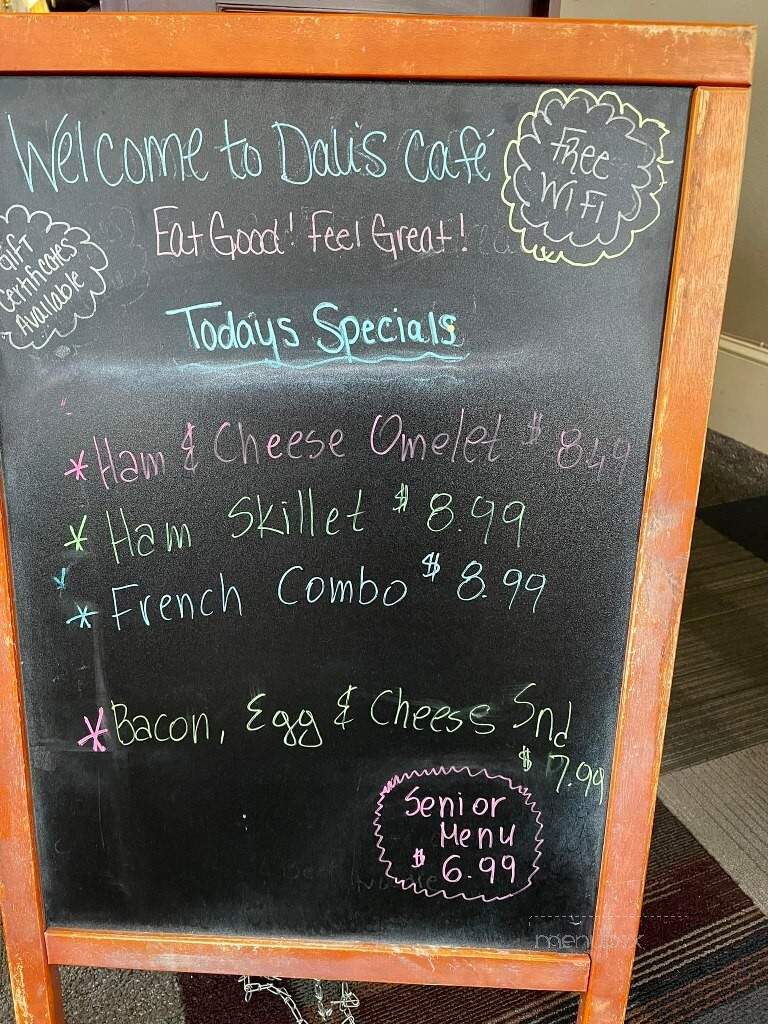 Welcome to Dali's Café
Free
WiFi
Eat Good! Feel Great!
Gift
Certificates
Available
Todays Specials
* Ham & Cheese Omelet $ 8.49
* Ham Skillet $ 8.99
* French Combo $ 8.99
* Bacon, Egg & Cheese Snd
$ 7.99
Senior
Menu
$ 6.99
menupix